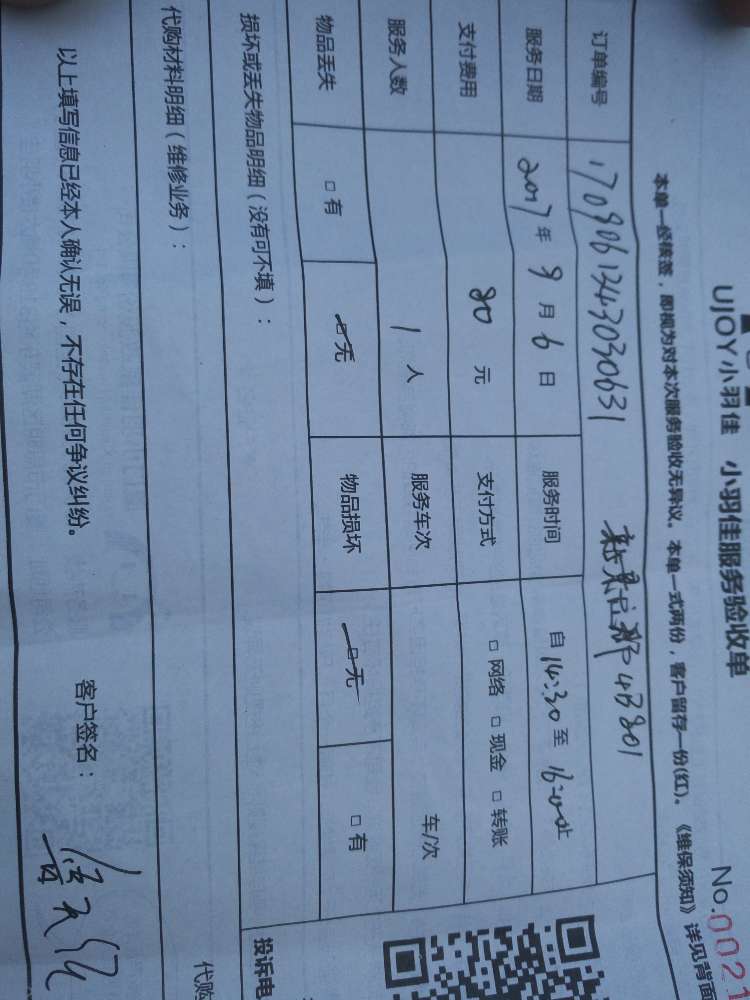 UJOY小羽佳 小羽佳服务验收单
No.0021
本单一经核签，即视为对本次服务验收无异议。本单一式两份，客户留存一份(红)。《维保须知》详见背面
订单编号 1709061343030631 4B801
服务日期 2017年9月6日 服务时间 自14:30至16:00止
支付费用 80元 支付方式 □网络 □现金 □转账
服务人数 1人 服务车次 车/次
物品丢失 □有 □无 物品损坏 □无 □有
损坏或丢失物品明细（没有可不填）：
投诉电
代购材料明细（维修业务）：
代购
以上填写信息已经本人确认无误，不存在任何争议纠纷。 客户签名：